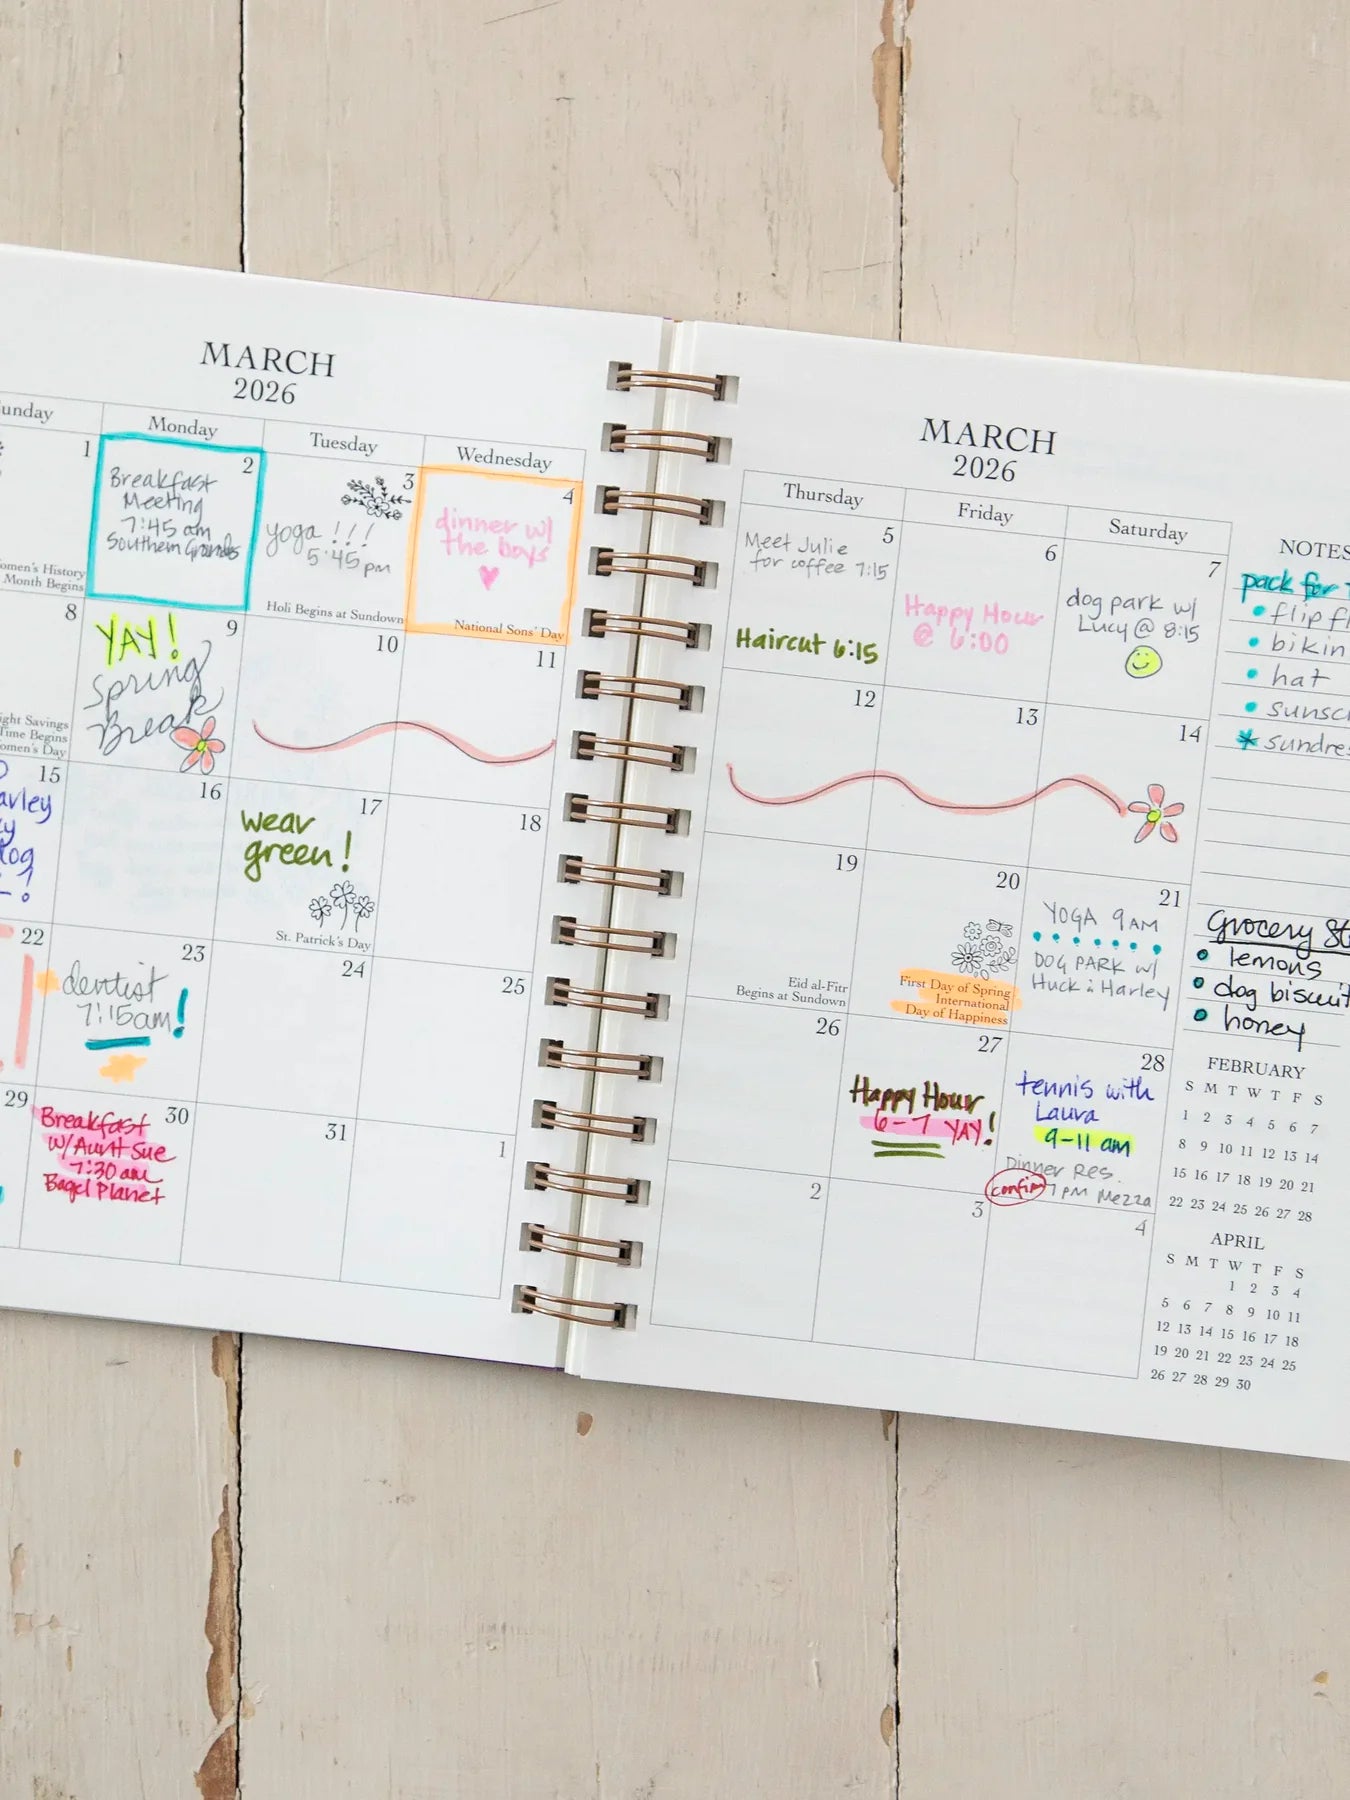 MARCH
2026
Monday
Tuesday
Wednesday
1
Month Begins
2
Breakfast
Meeting
7:45 am
Southern Grounds
3
yoga !!!
5:45pm
Holi Begins at Sundown
4
dinner w/
the boys
National Sons' Day
8
Time Begins
9
YAY!
Spring
Break
10
11
15
16
17
wear
green!
St. Patrick's Day
18
22
23
dentist
7:15am!
24
25
29
30
Breakfast
w/ Aunt Sue
7:30 am
Bagel Planet
31
1
MARCH
2026
Thursday
Friday
Saturday
5
Meet Julie
for coffee 7:15
Haircut 6:15
6
Happy Hour
@ 6:00
7
dog park w/
Lucy @ 8:15
12
13
14
19
Eid al-Fitr
Begins at Sundown
20
First Day of Spring
International
Day of Happiness
21
YOGA 9AM
DOG PARK w/
Huck & Harley
26
27
Happy Hour
6-7 YAY!
28
tennis with
Laura
9-11 am
Dinner Res.
confirm 7 PM Mezza
2
3
4
NOTES
pack for
hat
Grocery
lemons
dog
honey
FEBRUARY
S M T W T F S
1 2 3 4 5 6 7
8 9 10 11 12 13 14
15 16 17 18 19 20 21
22 23 24 25 26 27 28
APRIL
S M T W T F S
1 2 3 4
5 6 7 8 9 10 11
12 13 14 15 16 17 18
19 20 21 22 23 24 25
26 27 28 29 30